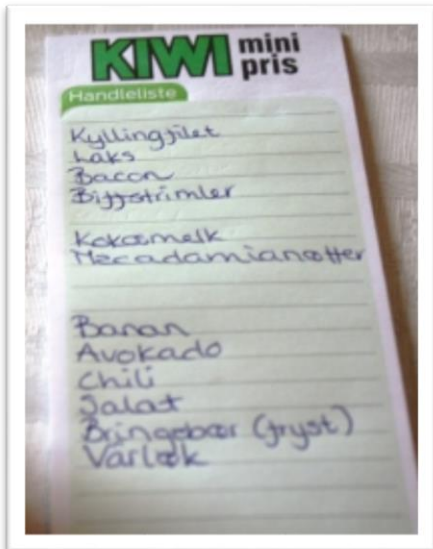 KIWI mini
pris
Handleliste
Kyllingfilet
Laks
Bacon
Biffstrimler
Kokosmelk
Macadamianøtter
Banan
Avokado
Chili
Salat
Bringebær (fryst)
Vårløk